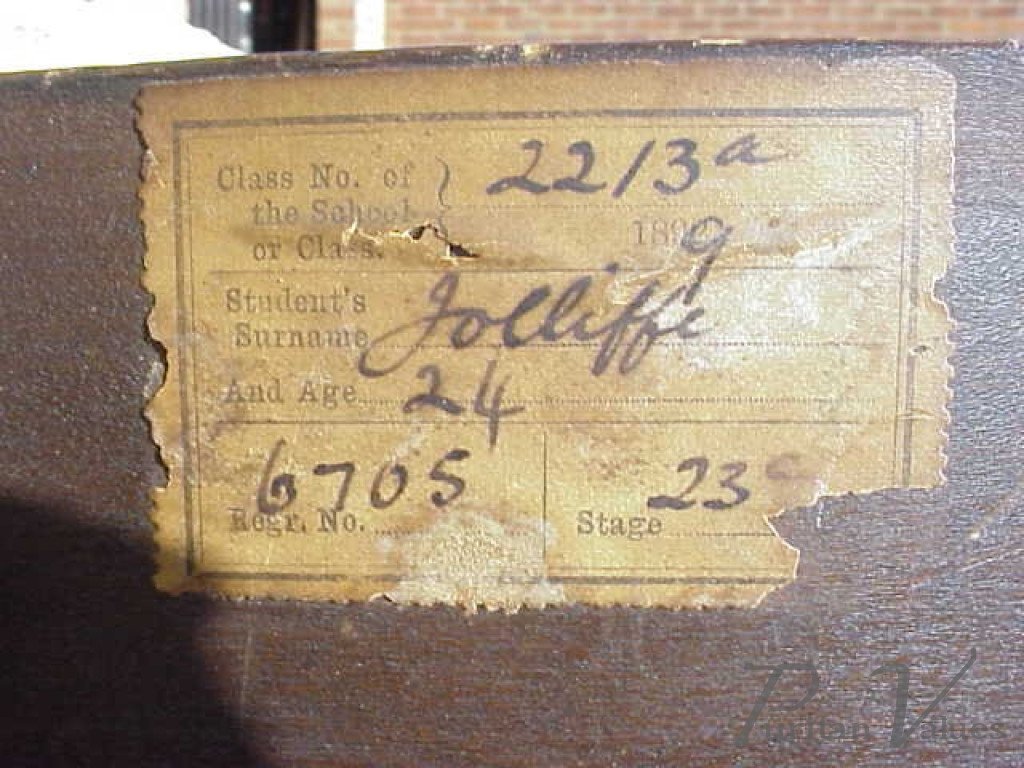 Class No. of } 2213a
the School
or Class. 1899
Student's
Surname Jolliffe
And Age 24
6705 23c
Regr. No. Stage
Puritan Values